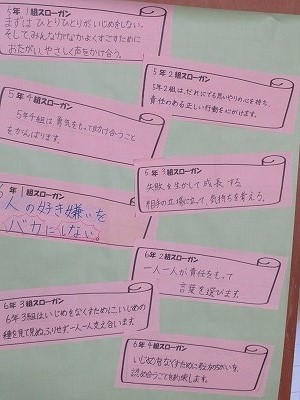 5年 1組スローガン
まずは ひとりひとりが いじめをしない。
そして みんながなかよくすごすために
おたがいやさしく声をかけ合う。
5年 2組スローガン
5年2組は、だれにでも思いやりの心を持ち、
責任のある正しい行動を心がけます。
5年 4組スローガン
5年4組は勇気をもって助け合うこと
をがんばります。
5年 3組スローガン
失敗を生かして成長する。
相手の立場に立って、気持ちを考えよう。
6年 1組スローガン
人の好き嫌いを
バカにしない。
6年 2組スローガン
一人一人が責任をもって
言葉を選びます。
6年 3組スローガン
6年3組はいじめをなくすために、いじめの
種を見て見ぬふりせず一人一人支え合います。
6年 4組スローガン
いじめをなくすために
認め合うことを約束します。